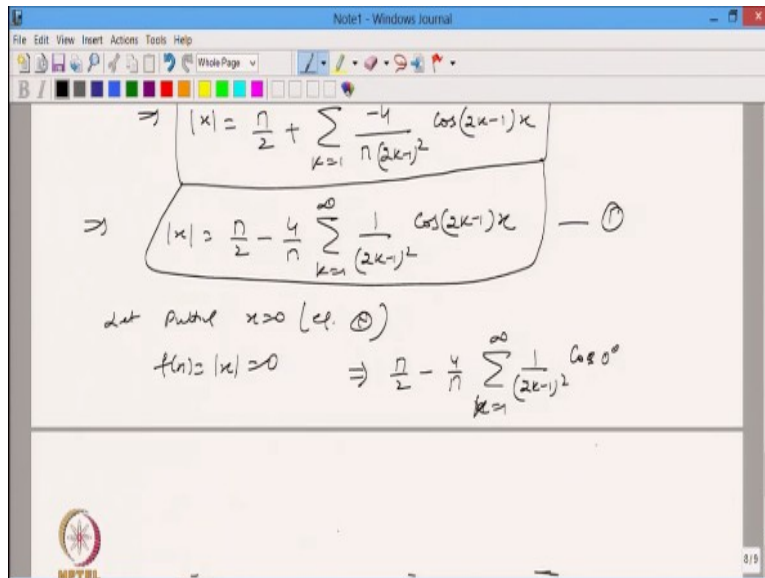 Note1 - Windows Journal
File Edit View Insert Actions Tools Help
Whole Page
B I
⇒ |x| = π/2 + ∑_{k=1} -4/(π(2k-1)²) cos(2k-1)x
⇒ |x| = π/2 - 4/π ∑_{k=1}^{∞} 1/(2k-1)² cos(2k-1)x — ①
Let x=0 (eq. ①)
f(x) = |x| = 0 ⇒ π/2 - 4/π ∑_{k=1}^{∞} 1/(2k-1)² cos 0°
8/9
NPTEL